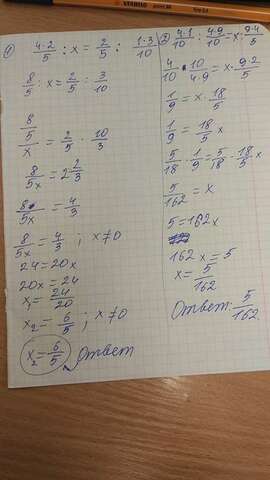 1) 4·2/5 : x = 2/5 : 1·3/10
8/5 : x = 2/5 : 3/10
8/5/x = 2/5 · 10/3
8/5x = 2 2/3
8/5x = 4/3
8/5x = 4/3 ; x≠0
24=20x
20x=24
x₁=24/20
x₂=6/5 ; x≠0
x₂=6/5 Ответ
2) 4·1/10 : 4·9/10 = x · 9·4/3
4/10 · 10/4·9 = x · 9·2/5
1/9 = x · 18/5
1/9 = 18/5 x
5/18 · 1/9 = 5/18 · 18/5 x
5/162 = x
5=162x
162x=5
x=5/162
Ответ: 5/162